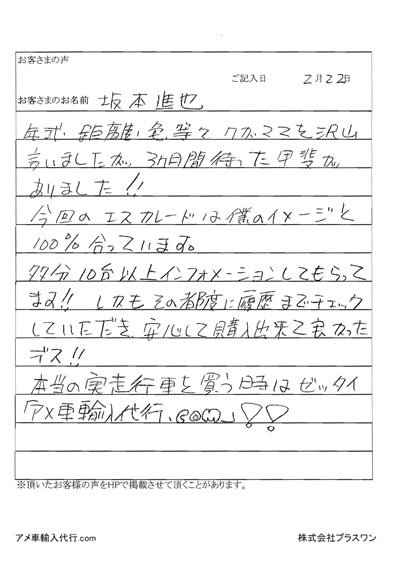 お客さまの声
ご記入日 2月22日
お客さまのお名前 坂本進也
年式・距離・色、等々 ワガママを沢山
言いましたが、3ヶ月間待った甲斐が
ありました!!
今回のエスカレードは僕のイメージと
100%合っています。
多分10台以上インフォメーションしてもらって
ます!! しかもその都度に履歴までチェック
していただき、安心して購入出来て良かった
デス!!
本当の実走行車を買う時はゼッタイ
「アメ車輸入代行.com」!!
※頂いたお客様の声をHPで掲載させて頂くことがあります。
アメ車輸入代行.com
株式会社プラスワン